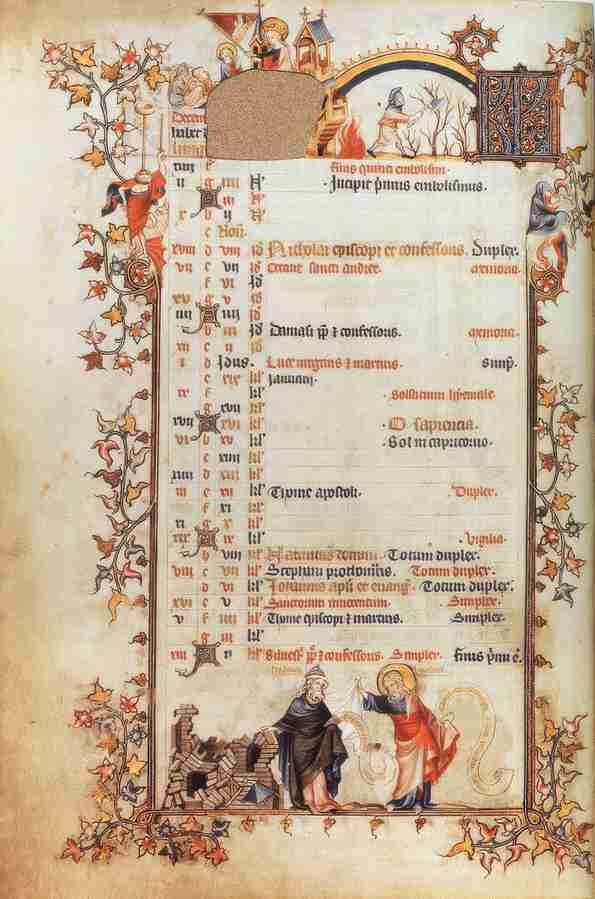 Decem
habet
xiii f Finis quinti embolismi.
ii g iiii N' Incipit primus embolismus.
A iii N'
x b ii N'
c Non'
xviii d viii id Nicholai episcopi et confessoris. Duplex.
vii e vii id Octave sancti andree. memoria.
f vi id
xv g v id
iiii A iiii id
b iii id Damasi pp et confessoris. memoria.
xii c ii id
i d Idus. Lucie virginis et martiris. simpl'.
e xix kl' Januarii.
ix f kl' Solsticium hyemale
g xvii kl'
xvii A xvi kl' O sapiencia.
vi b xv kl' Sol in capricorno.
c xiiii kl'
xiiii d xiii kl'
iii e xii kl' Thome apostoli. Duplex.
f xi kl'
xi g x kl'
xix A ix kl' Vigilia
b viii kl' Nativitas domini. Totum duplex.
viii c vii kl' Stephani prothomris. Totum duplex.
d vi kl' Iohannis apli et evang'. Totum duplex.
xvi e v kl' Sanctorum innocentum. Simplex.
v f iiii kl' Thome episcopi et martiris. Simplex.
g iii kl'
xiii A ii kl' Silvest' pp et confessoris. Simplex. Finis primi e.